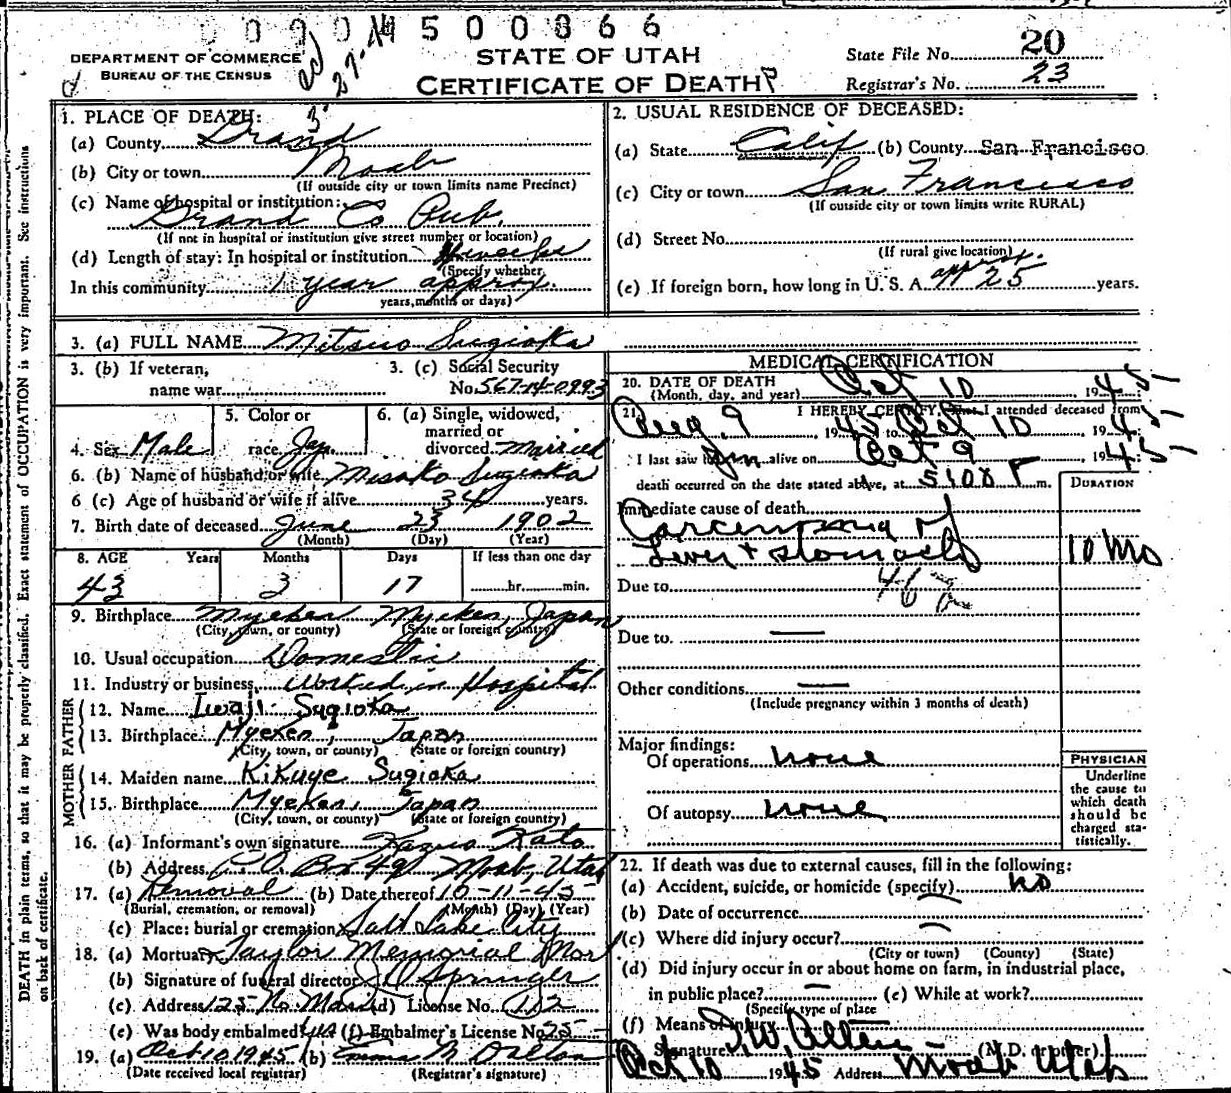 500866
DEPARTMENT OF COMMERCE
BUREAU OF THE CENSUS
STATE OF UTAH
CERTIFICATE OF DEATH
State File No. 20
Registrar's No. 23
1. PLACE OF DEATH:
(a) County Grand
(b) City or town Moab
(If outside city or town limits name Precinct)
(c) Name of hospital or institution:
Grand Co Pub.
(If not in hospital or institution give street number or location)
(d) Length of stay: In hospital or institution
(Specify whether
In this community 1 year approx.
years, months or days)
2. USUAL RESIDENCE OF DECEASED:
(a) State Calif (b) County San Francisco
(c) City or town San Francisco
(If outside city or town limits write RURAL)
(d) Street No.
(If rural give location)
(e) If foreign born, how long in U. S. A. approx. 25 years.
3. (a) FULL NAME Mitsuo Sugioka
3. (b) If veteran,
name war
3. (c) Social Security
No. 567-14-0993
4. Sex Male
5. Color or
race Jap.
6. (a) Single, widowed,
married or
divorced Married
6. (b) Name of husband or wife Misako Sugioka
6 (c) Age of husband or wife if alive 34 years.
7. Birth date of deceased June 23 1902
(Month) (Day) (Year)
8. AGE Years Months Days If less than one day
43 3 17 hr. min.
9. Birthplace Myeken Myeken, Japan
(City, town, or county) (State or foreign country)
10. Usual occupation Domestic
11. Industry or business Worked in Hospital
FATHER
12. Name Iwaji Sugioka
13. Birthplace Myeken, Japan
(City, town, or county) (State or foreign country)
MOTHER
14. Maiden name Kikuye Sugioka
15. Birthplace Myeken, Japan
(City, town, or county) (State or foreign country)
16. (a) Informant's own signature Kazuo Kato
(b) Address P.O. Box 491 Moab, Utah
17. (a) Removal (b) Date thereof 10-11-45
(Burial, cremation, or removal) (Month) (Day) (Year)
(c) Place: burial or cremation Salt Lake City
18. (a) Mortuary Taylor Memorial Mor
(b) Signature of funeral director J. O. Springer
(c) Address 125 No. Main (d) License No. 112
(e) Was body embalmed? yes (f) Embalmer's License No. 25
19. (a) Oct 10, 1945 (b) Emma M Dalton
(Date received local registrar) (Registrar's signature)
MEDICAL CERTIFICATION
20. DATE OF DEATH
(Month, day, and year) Oct 10, 1945
21. I HEREBY CERTIFY, That I attended deceased from
Aug. 9, 1945 to Oct 10 1945
I last saw him alive on Oct 9 1945
death occurred on the date stated above, at 5:00 P m.
DURATION
Immediate cause of death
Carcenoma of
Liver & stomach 10 mo
Due to
Due to —
Other conditions —
(Include pregnancy within 3 months of death)
Major findings:
Of operations none
Of autopsy none
PHYSICIAN
Underline
the cause to
which death
should be
charged sta-
tistically.
22. If death was due to external causes, fill in the following:
(a) Accident, suicide, or homicide (specify) no
(b) Date of occurrence
(c) Where did injury occur?
(City or town) (County) (State)
(d) Did injury occur in or about home on farm, in industrial place,
in public place? — (e) While at work?
(Specify type of place
(f) Means of injury
Signature I.W. Allen (M.D. or other)
Oct 10 1945 Address Moab Utah
DEATH in plain terms, so that it may be properly classified. Exact statement of OCCUPATION is very important. See instructions
on back of certificate.